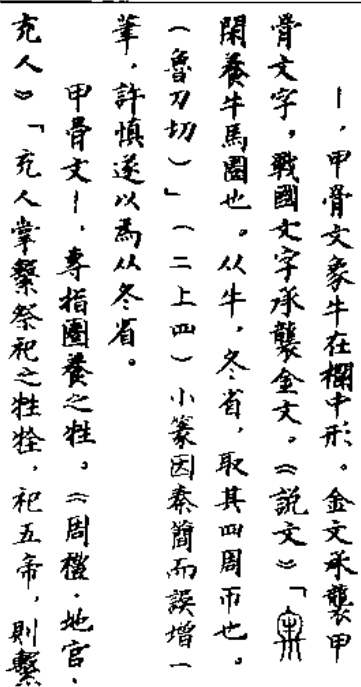 ｜，甲骨文象牛在欄中形。金文承襲甲
骨文字，戰國文字承襲金文。《説文》「
閑養牛馬圈也。从牛，冬省，取其四周帀也。
（魯刀切）」（二上四）小篆因秦簡而誤增一
筆，許慎遂以為从冬省。
甲骨文｜，專指圈養之牲。《周禮·地官·
充人》「充人掌繫祭祀之牲牷，祀五帝，則繫